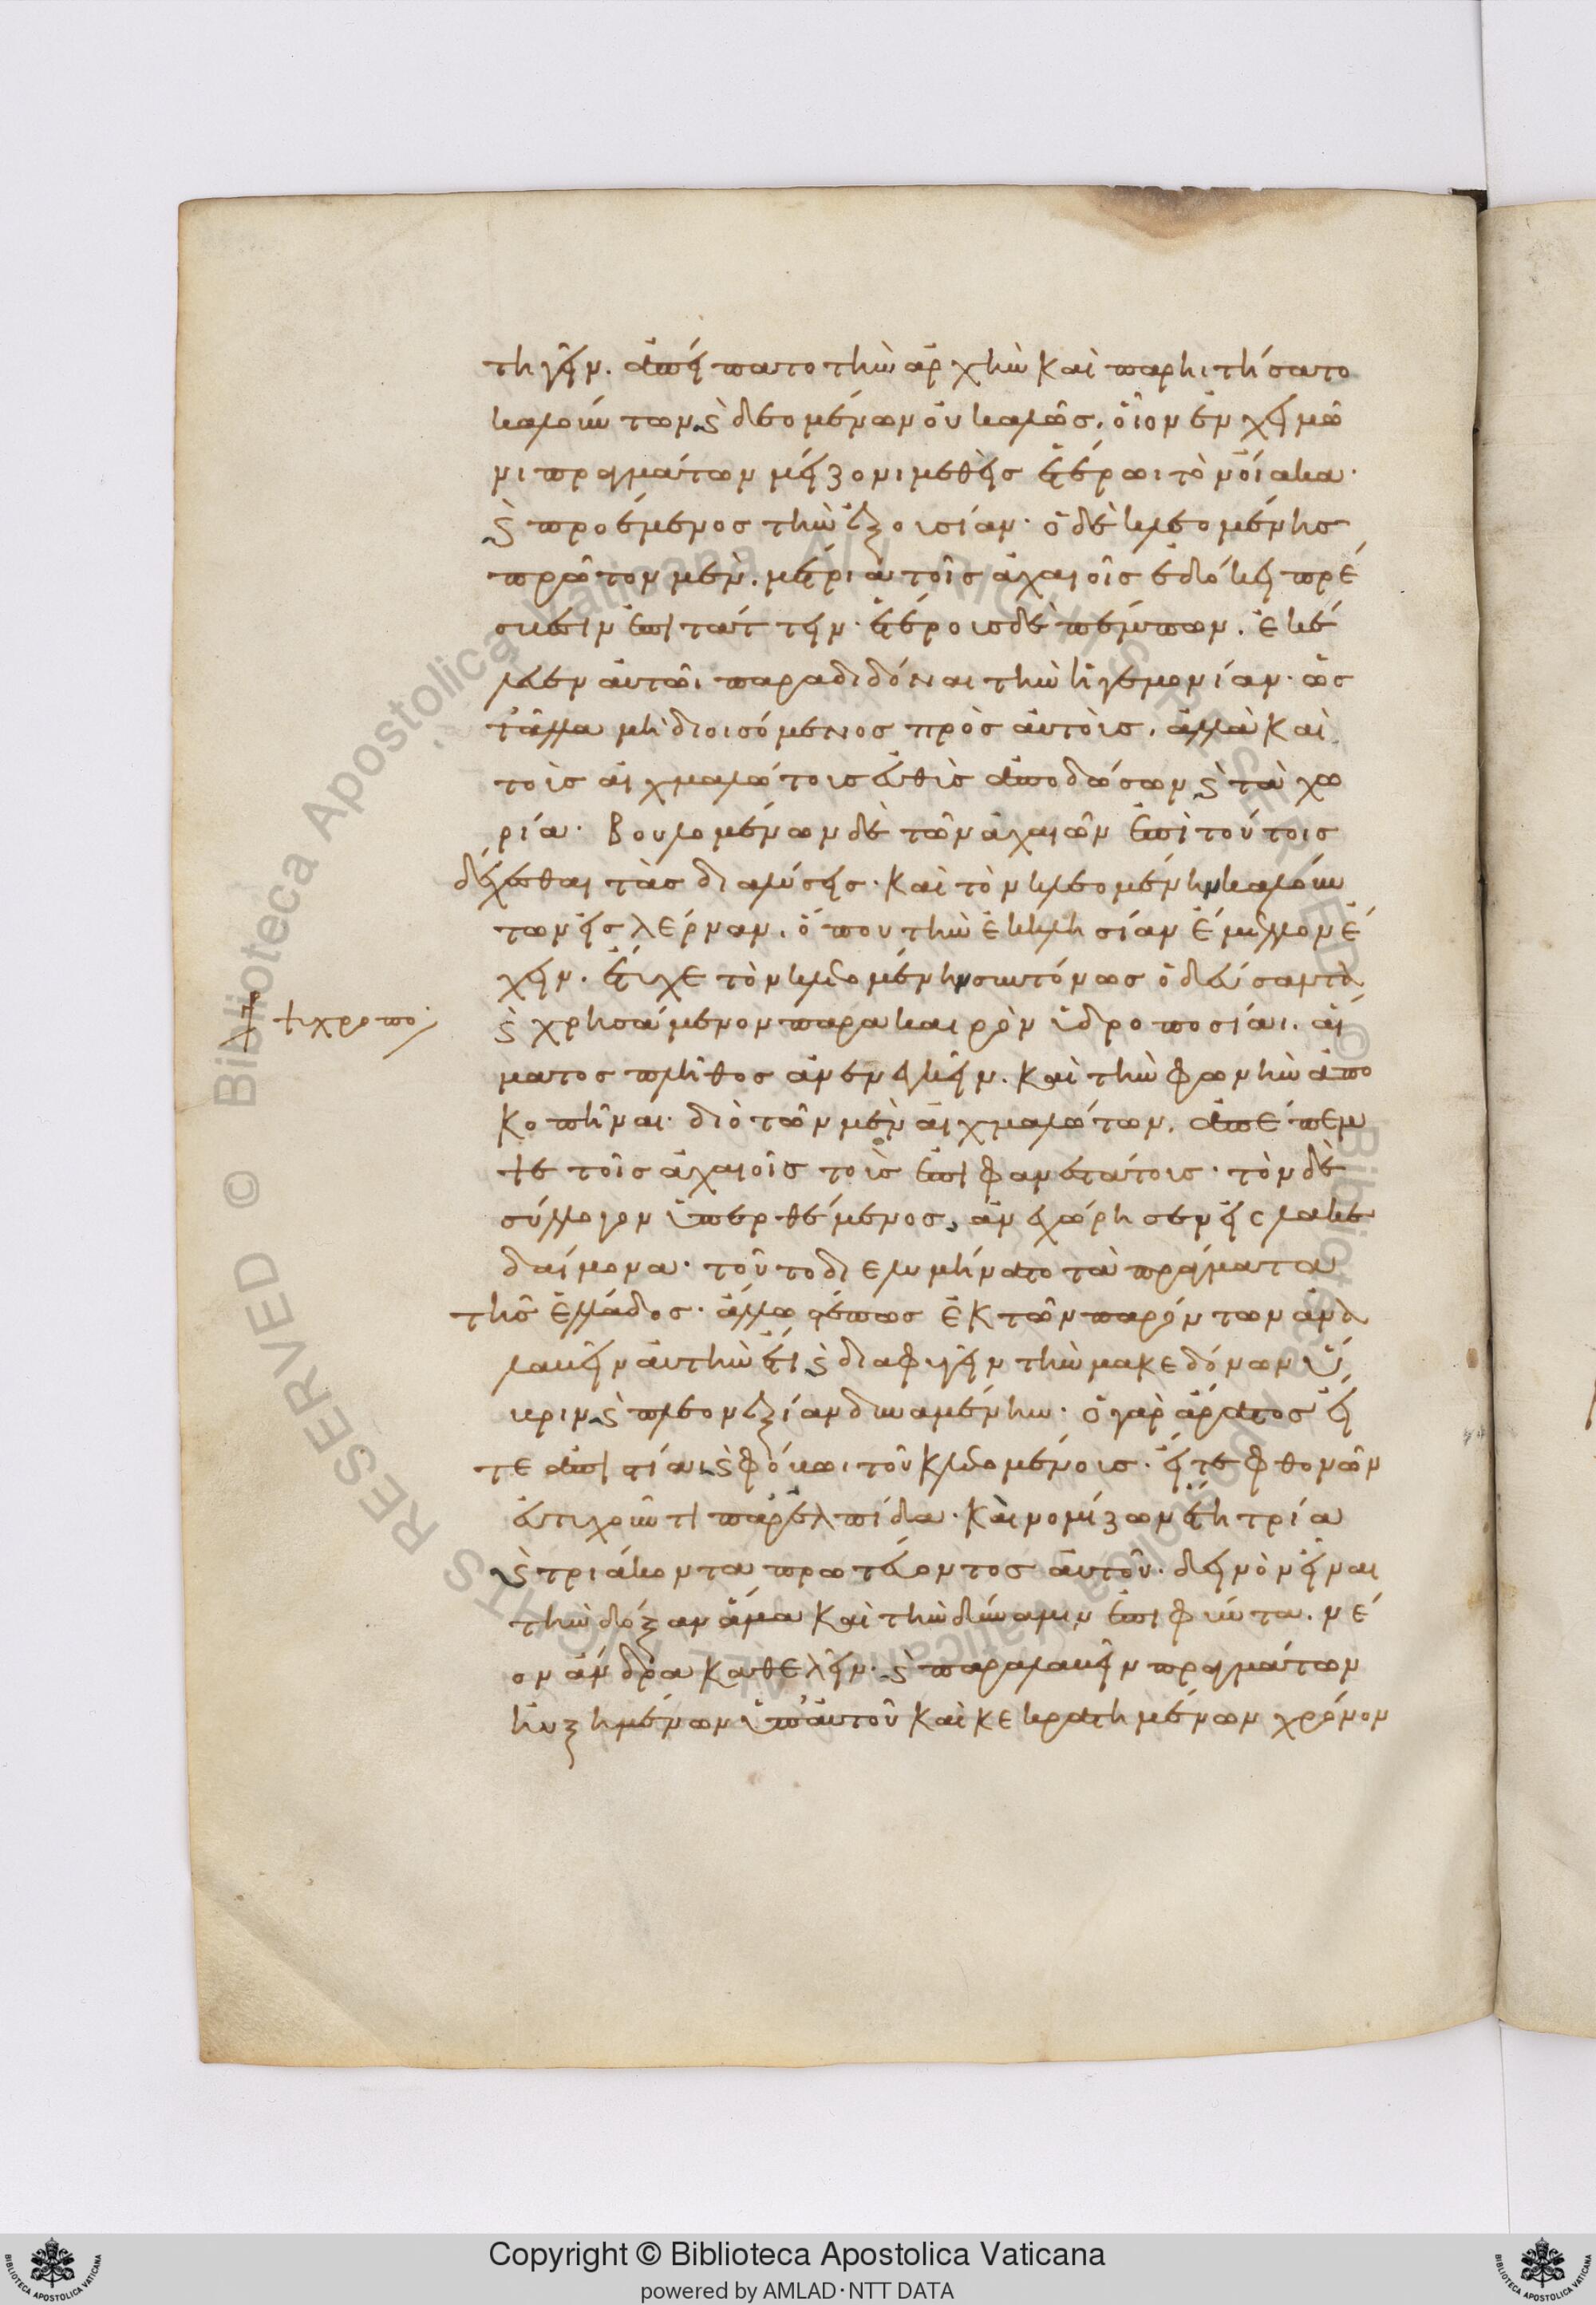 τηγεῖν. ἀπείπατο τὴν ἀρχὴν καὶ παρηιτήσατο
καλούντων καὶ δεομένων οὐ καλῶς. οἷον ἐν χειμῶ
νι πραγμάτων μείζονι μεθεὶς ἑτέρωι τὸν οἴακα.
καὶ προέμενος τὴν ἐξουσίαν. ὁ δὲ κλεομένης
πρῶτον μὲν. μέτρια τοῖς ἀχαιοῖς ἐδόκει πρέ
σβεσιν ἐπιτάττειν. ἑτέρους δὲ πέμπων. ἐκέ
λευεν αὐτῶι παραδιδόναι τὴν ἡγεμονίαν. ὡς
τἆλλα μὴ διοισόμενος πρὸς αὐτούς. ἀλλὰ καὶ
τοὺς αἰχμαλώτους εὐθὺς ἀποδώσων καὶ τὰ χω
ρία. Βουλομένων δὲ τῶν ἀχαιῶν ἐπὶ τούτοις
δέχεσθαι τὰς διαλύσεις. καὶ τὸν κλεομένην καλούν
των εἰς λέρναν. ὅπου τὴν ἐκκλησίαν ἔμελλον ἕ
χειν. ἔτυχε τὸν κλεομένην συντόνως ὁδεύσαντα
καὶ χρησάμενον παρὰ καιρὸν ὑδροποσίαι. αἵ
ματος πλῆθος ἀνενεγκεῖν. καὶ τὴν φωνὴν ἀπο
κοπῆναι. διὸ τῶν μὲν αἰχμαλώτων. ἀπέπεμ
ψε τοῖς ἀχαιοῖς τοὺς ἐπιφανεστάτους. τὸν δὲ
σύλλογον ὑπερθέμενος, ἀνεχώρησεν εἰς λακε
δαίμονα. τοῦτο διελυμήνατο τὰ πράγματα
τῆς ἑλλάδος. ἄλλως γέ πως ἐκ τῶν παρόντων ἀνα
λαβεῖν αὑτὴν ἔτι καὶ διαφυγεῖν τὴν μακεδόνων ὕ
βριν καὶ πλεονεξίαν δυναμένην. ὁ γὰρ ἄρατος εἴ
τε ἀπιστίαι καὶ φόβωι τοῦ κλεομένους. εἴτε φθονῶν
εὐτυχοῦντι παρ' ἐλπίδα. καὶ νομίζων ἔτη τρία
καὶ τριάκοντα πρωτεύοντος αὐτοῦ. δεινὸν εἶναι
τὴν δόξαν ἅμα καὶ τὴν δύναμιν ἐπιφύντα. νέ
ον ἄνδρα καθελεῖν. καὶ παραλαβεῖν πραγμάτων
ηὐξημένων ὑπ' αὐτοῦ καὶ κεκρατημένων χρόνον
ψυχροπο
Copyright © Biblioteca Apostolica Vaticana
powered by AMLAD·NTT DATA